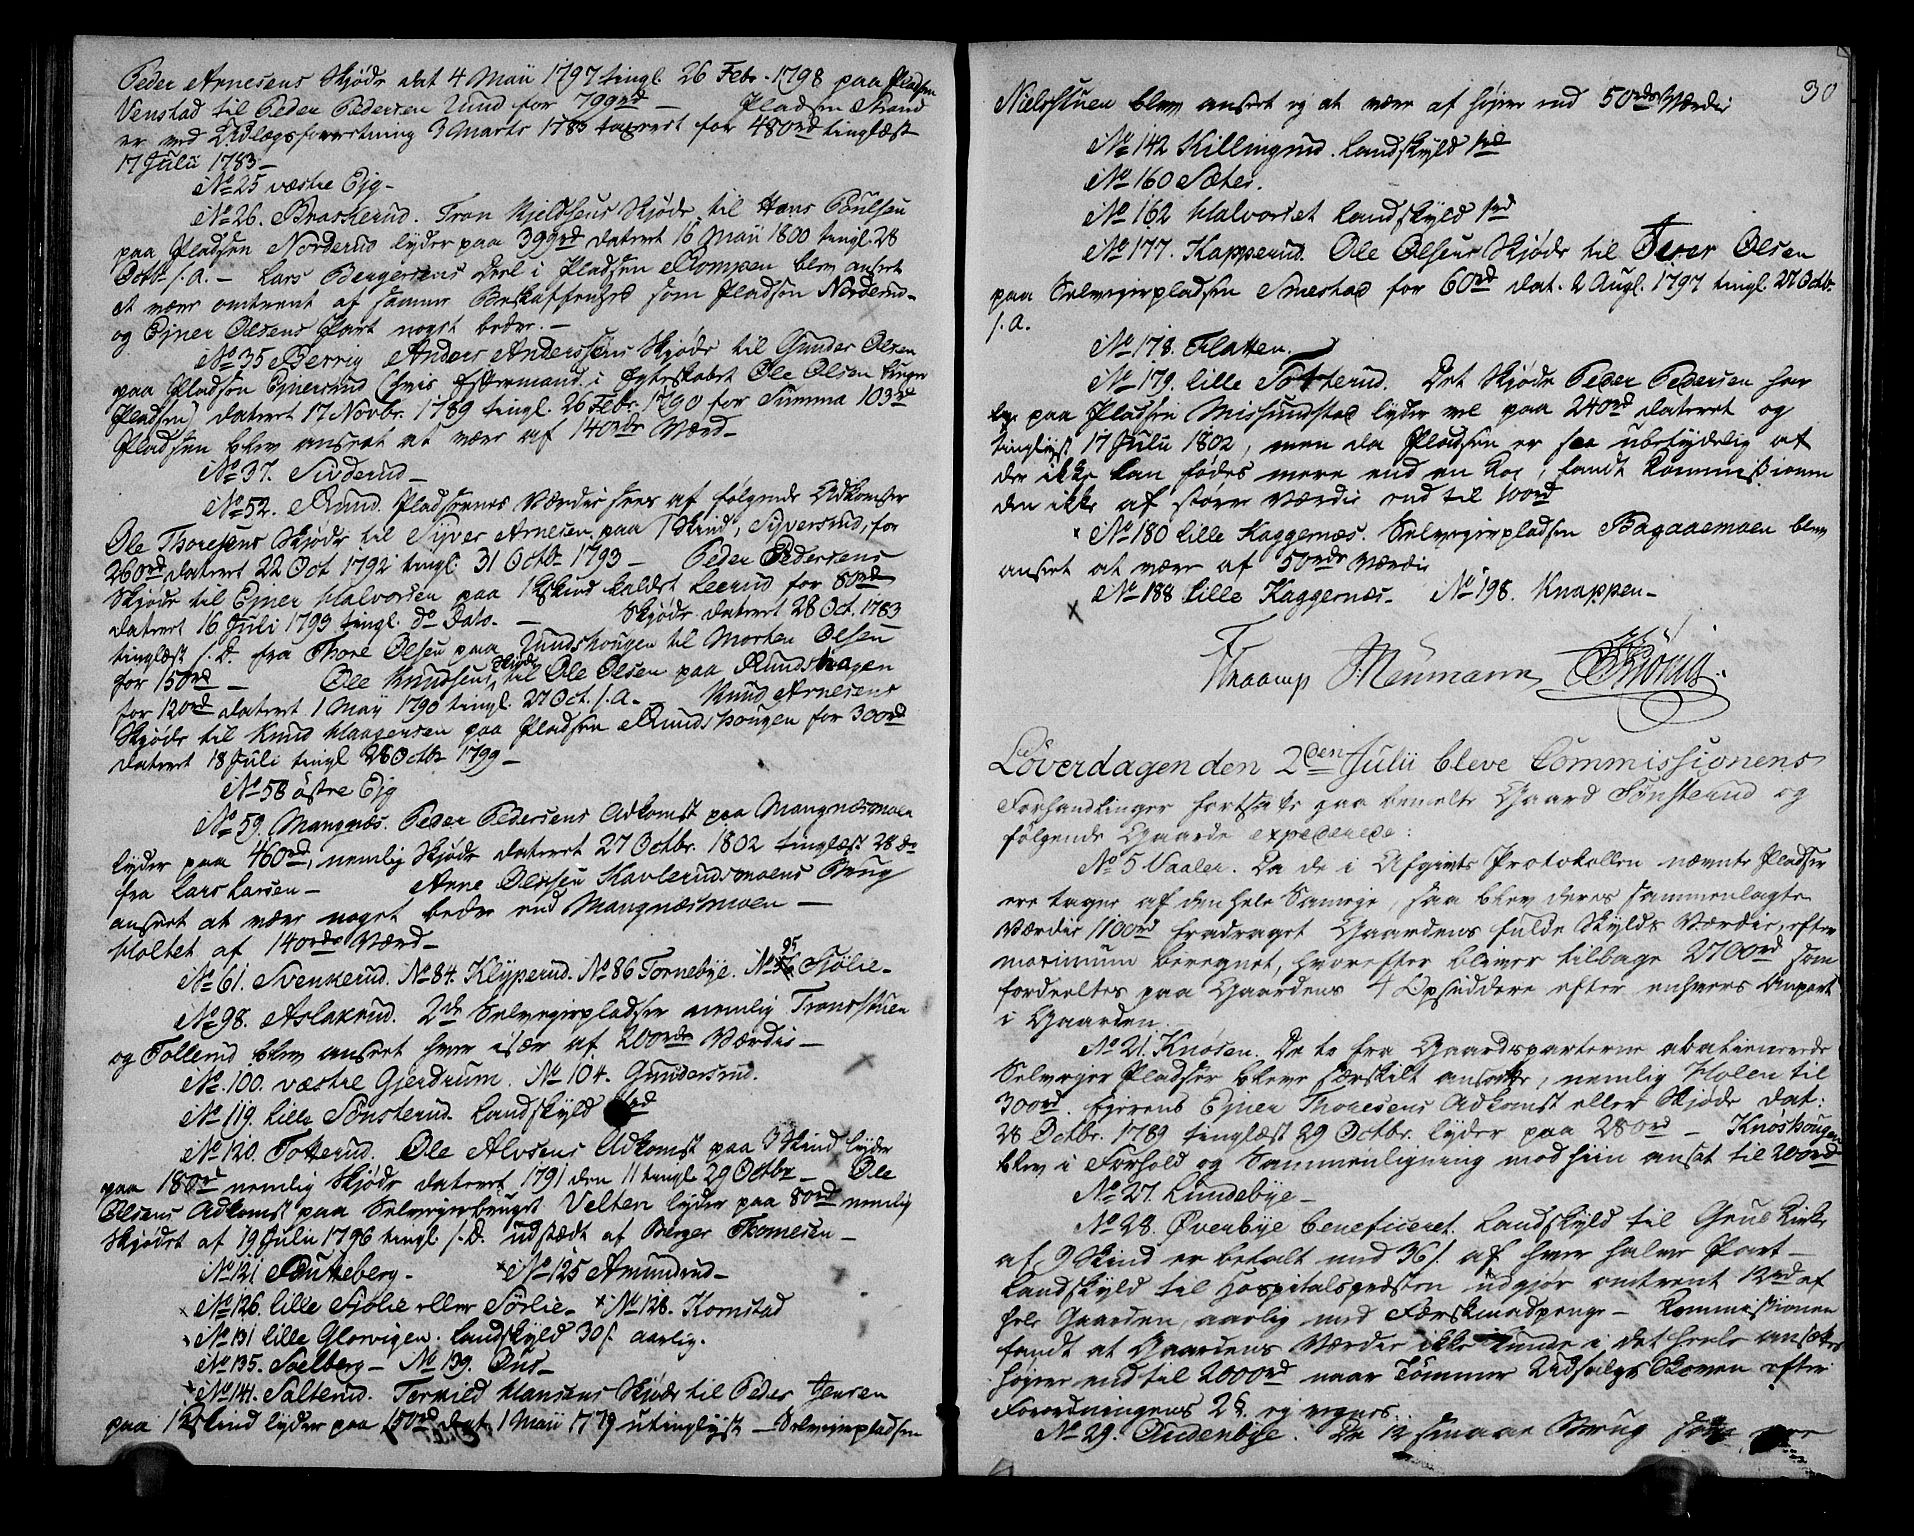 Peder Arnesens Skjøde dat 4 Maii 1797 tingl. 26 Febr. 1798 paa Pladsen
Venstad til Peder Pedersen Lund for 799rd — Pladsen Strand
er ved Udlægsforretning 3 Marts 1783 taxeret for 480rd tinglæst
17 Julii 1783 —
No 25 væstre Ejg —
No 26. Braskerud. Tron Kjeldsens Skjøde til Hans Poulsen
paa Pladsen Norderud lyder paa 399rd dateret 16 Maii 1800 tingl. 28
Octbr s. a. — Lars Bergersens Deel i Pladsen Rompen blev anseet
at være omtrent af samme Beskaffenhed som Pladsen Norderud —
og Ejner Olsens Part noget bedre. —
No 35 Berrig Anders Anderssøns Skjøde til Gunder Olsen
paa Pladsen Ejnersrud (hvis Eftermand i Egteskabet Ole Olsen
Pladsen) dateret 17 Novbr. 1789 tingl. 26 Febr. 1790 for Summa 103rd
Pladsen blev anseet at være af 140rdr Værd —
No 37. Sivderud —
No 52. Rund. Pladsernes Værdie sees af følgende Adkomster
Ole Thoresens Skjøde til Syver Arnesen paa 1 Skind, Syversrud, for
260rd dateret 22 Oct 1792 tingl. 31 Octb 1793 — Peder Pedersens
Skjøde til Ejner Halvorsen paa 1 Skind kaldet Leerud for 80rd
dateret 16 Juli 1793 tingl. do Dato. — Skjøde dateret 28 Oct. 1783
tinglæst s. D. fra Thore Olsen paa Rundshougen til Morten Olsen
for 150rd — Ole Knudsens Skjøde til Ole Olsen paa Rundshagen
for 120rd dateret 1 Maij 1790 tingl. 27 Oct. s. a. Knud Arnesens
Skjøde til Knud Haagensen paa Pladsen Rundshougen for 300rd
dateret 18 Juli tingl 28 Octbr 1799 —
No 58 østre Ejg
No 59. Mangnæs. Peder Pedersens Adkomst paa Mangnæsmoen
lyder paa 460rd, nemlig Skjøde dateret 27 Octbr. 1802 tinglæst 28 do
fra Lars Larsen — Arne Olssen Havlerudsmoens Brug
anseet at være noget bedre end Mangnæsmoen —
Holtet af 140rdr Værd —
No 61. Svenkerud. No 84. Klypperud. No 86 Tornebye. No 95 Sjølie —
No 98. Aslakrud. 2de Selveierpladse nemlig Tronsstuen
og Tollerud blev anseet hver især af 200rdr Værdie —
No. 100. væstre Gjerdrum. No 104. Gundersrud.
No 119. lille Sønsterud. Landskyld rd
No 120. Totterud. Ole Alvsens Adkomst paa 3 Skind lyder
paa 180rd nemlig Skjøde dateret 1791 den 11 tingl 29 Octbr — Ole
Olsens Adkomst paa Selveierbruget Velten lyder paa 80rd nemlig
Skjødet af 19 Julii 1796 tingl s. D. udstædt af Berger Thomesen —
No 121 Skulleberg — No 125 Amundrud —
No 126. lille Sjølie eller Sørlie — No 128. Komstad
No 131 lille Glorvigen. Landskyld 30s. aarlig.
No 135. Soelberg — No 139. Øus —
No 141. Salterud. Terkild Hansens Skjøde til Peder Jensen
paa 1 Skind lyder paa 150rd dat 1 Maii 1779 utinglyst — Selveierpladsen
30
Nielsstuen blev anseet ej at være af højere end 50rdrs Værdie
No 142 Killingrud. Landskyld 1rd
No 160 Sæter.
No 162 Halvorset Landskyld 1rd
No 177. Kapperud. Ole Olsens Skjøde til Iver Olsen
paa Selveierpladsen Smestad for 60rd dat. 2 Augl. 1797 tingl. 27 Octb.
s. a.
No 178. Flatten.
No 179. lille Totterud. Det Skjøde Peder Pedersen har
paa Pladsen Missundstad lyder vel paa 240rd dateret og
tinglyst 17 Julii 1802, men da Pladsen er saa ubetydelig at
der ikke kan fødes mere end en Koe, fandt Commissionen
den ikke af større Værdie end til 100rd
No 180 lille Kaggernæs. Selveierpladsen Bagaaemoen blev
anseet at være af 50rdr Værdie
No 188 lille Kaggernæs — No 198. Knappen —
Thaamp Neumann König
Løverdagen den 2den Julii bleve Commissionens
Forhandlinger fortsatte paa bemelte Gaard Sønsterud og
følgende Gaarde expederede:
No 5 Vaaler. Da de i Afgivts Protokollen nævnte Pladser
ere tagne af den hele Sameje, saa blev deres sammenlagte
Værdie 1100rd fradraget Gaardens fulde Skylds Værdie, efter
maximum beregnet, hvorefter bliver tilbage 2700rd som
fordeeltes paa Gaardens 4 Opsiddere efter enhvers Anpart
i Gaarden.
No 21. Knøsen. De to fra Gaardsparterne abalienerede
Selveier Pladser bleve særskilt ansatte, nemlig Holen til
300rd. Ejerens Ejner Thoresens Adkomst eller Skjøde dat:
28 Octbr. 1789 tinglæst 29 Octbr. lyder paa 280rd — Knøshougen
blev i Forhold og Sammenligning mod him ansat til 200rd
No 27. Lundebye —
No 28. Øverbye beneficeret. Landskyld til Grue Kirke
af 9 Skind er betalt med 36s. af hver halve Part —
Landskyld til Hospitalspræsten udgjør omtrent 12rd af
hele Gaarden, aarlig med Færskmadpenge — Kommissionen
fandt at Gaardens Værdie ikke kunde i det heele ansættes
højere end til 2000rd naar Tømmer Udsalgs Skoven efter
Forordningens 2 §. ej regnes.
No 29. Oudenbye. De 12 smaae Brug